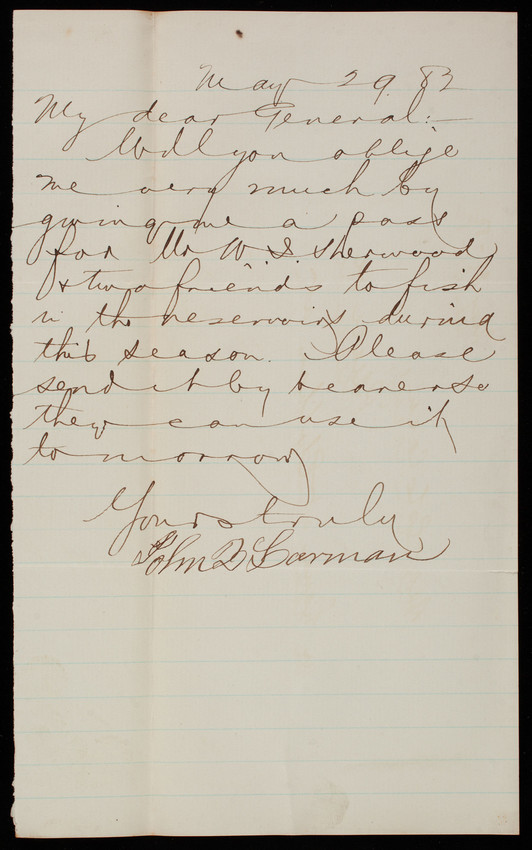 May 29. 82
My dear General:—
Will you oblige
me very much by
giving me a pass
for Mr W. S. Sherwood
& two friends to fish
in the reservoirs during
this season. Please
send it by bearer so
they can use it
tomorrow
Yours truly
John D Larman